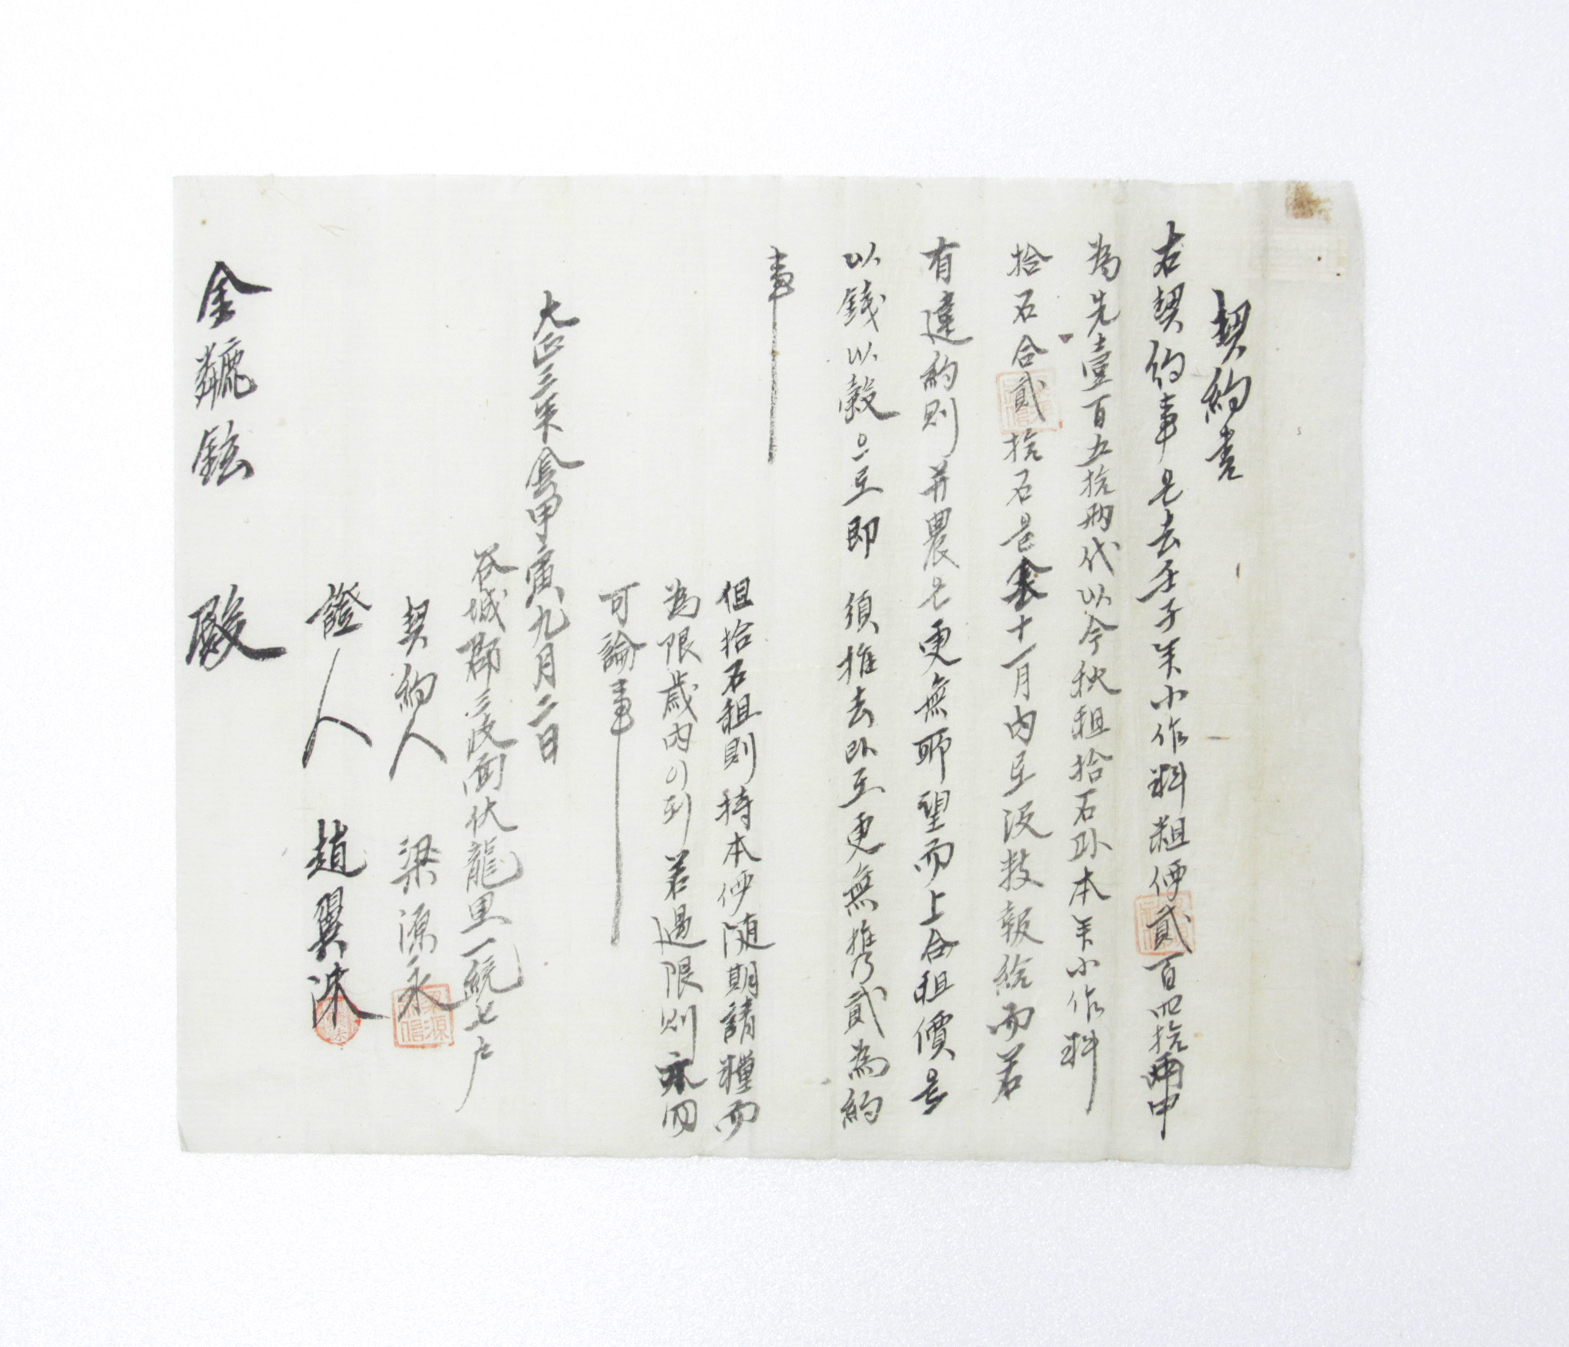 契約書
右契約事은去壬子年小作料租価貳百四拾兩中
為先壹百五拾兩代以今秋租拾石卧本年小作料
拾石合貳拾石을來十一月內로没数報給而若
有違約則并農고更無所望而上合租價를
以錢以穀으로即 須推去卧로更無携貳為約
事
但拾石租則待本価随期請糧而
為限歲內이되若過限則亦同
可論事
大正三年舍甲寅九月二日
谷城郡三岐面伏龍里一統七戶
契約人 梁源永
證人 趙翼洙
金鉉 殿